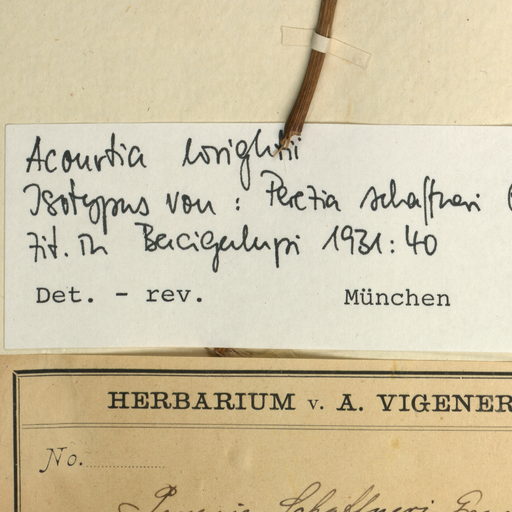 Acourtia wrightii
Isotypus von : Perezia schaffneri
zit. in Bacigalupi 1931:40
Det. - rev. München
HERBARIUM v. A. VIGENER
No.
Schaffneri